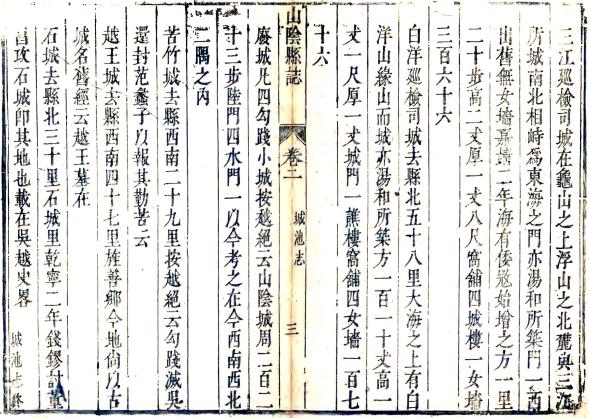 三江廵檢司城在龜山之上浮山之北麓與三江
所城南北相峙爲東海之門亦湯和所築門一西
出舊無女墻嘉靖二年海有倭寇始增之方一里
二十步高二丈厚一丈八尺窩舖四城樓一女墻
三百六十六
白洋廵檢司城去縣北五十八里大海之上有白
洋山緣山而城亦湯和所築方一百一十丈高一
丈一尺厚一丈城門一譙樓窩舖四女墻一百七
十六
山陰縣誌
卷二
城池志
三
廢城凡四勾踐小城按越絕云山陰城周二百二
十三步陸門四水門一以今考之在今西南西北
二隅之內
苦竹城去縣西南二十九里按越絕云勾踐滅吳
還封范蠡子以報其勤苦云
越王城去縣西南四十七里旌善鄉今地尙以古
城名舊經云越王墓在
石城去縣北三十里石城里乾寧二年錢鏐討董
昌攻石城卽其地也載在吳越史畧
城池志終